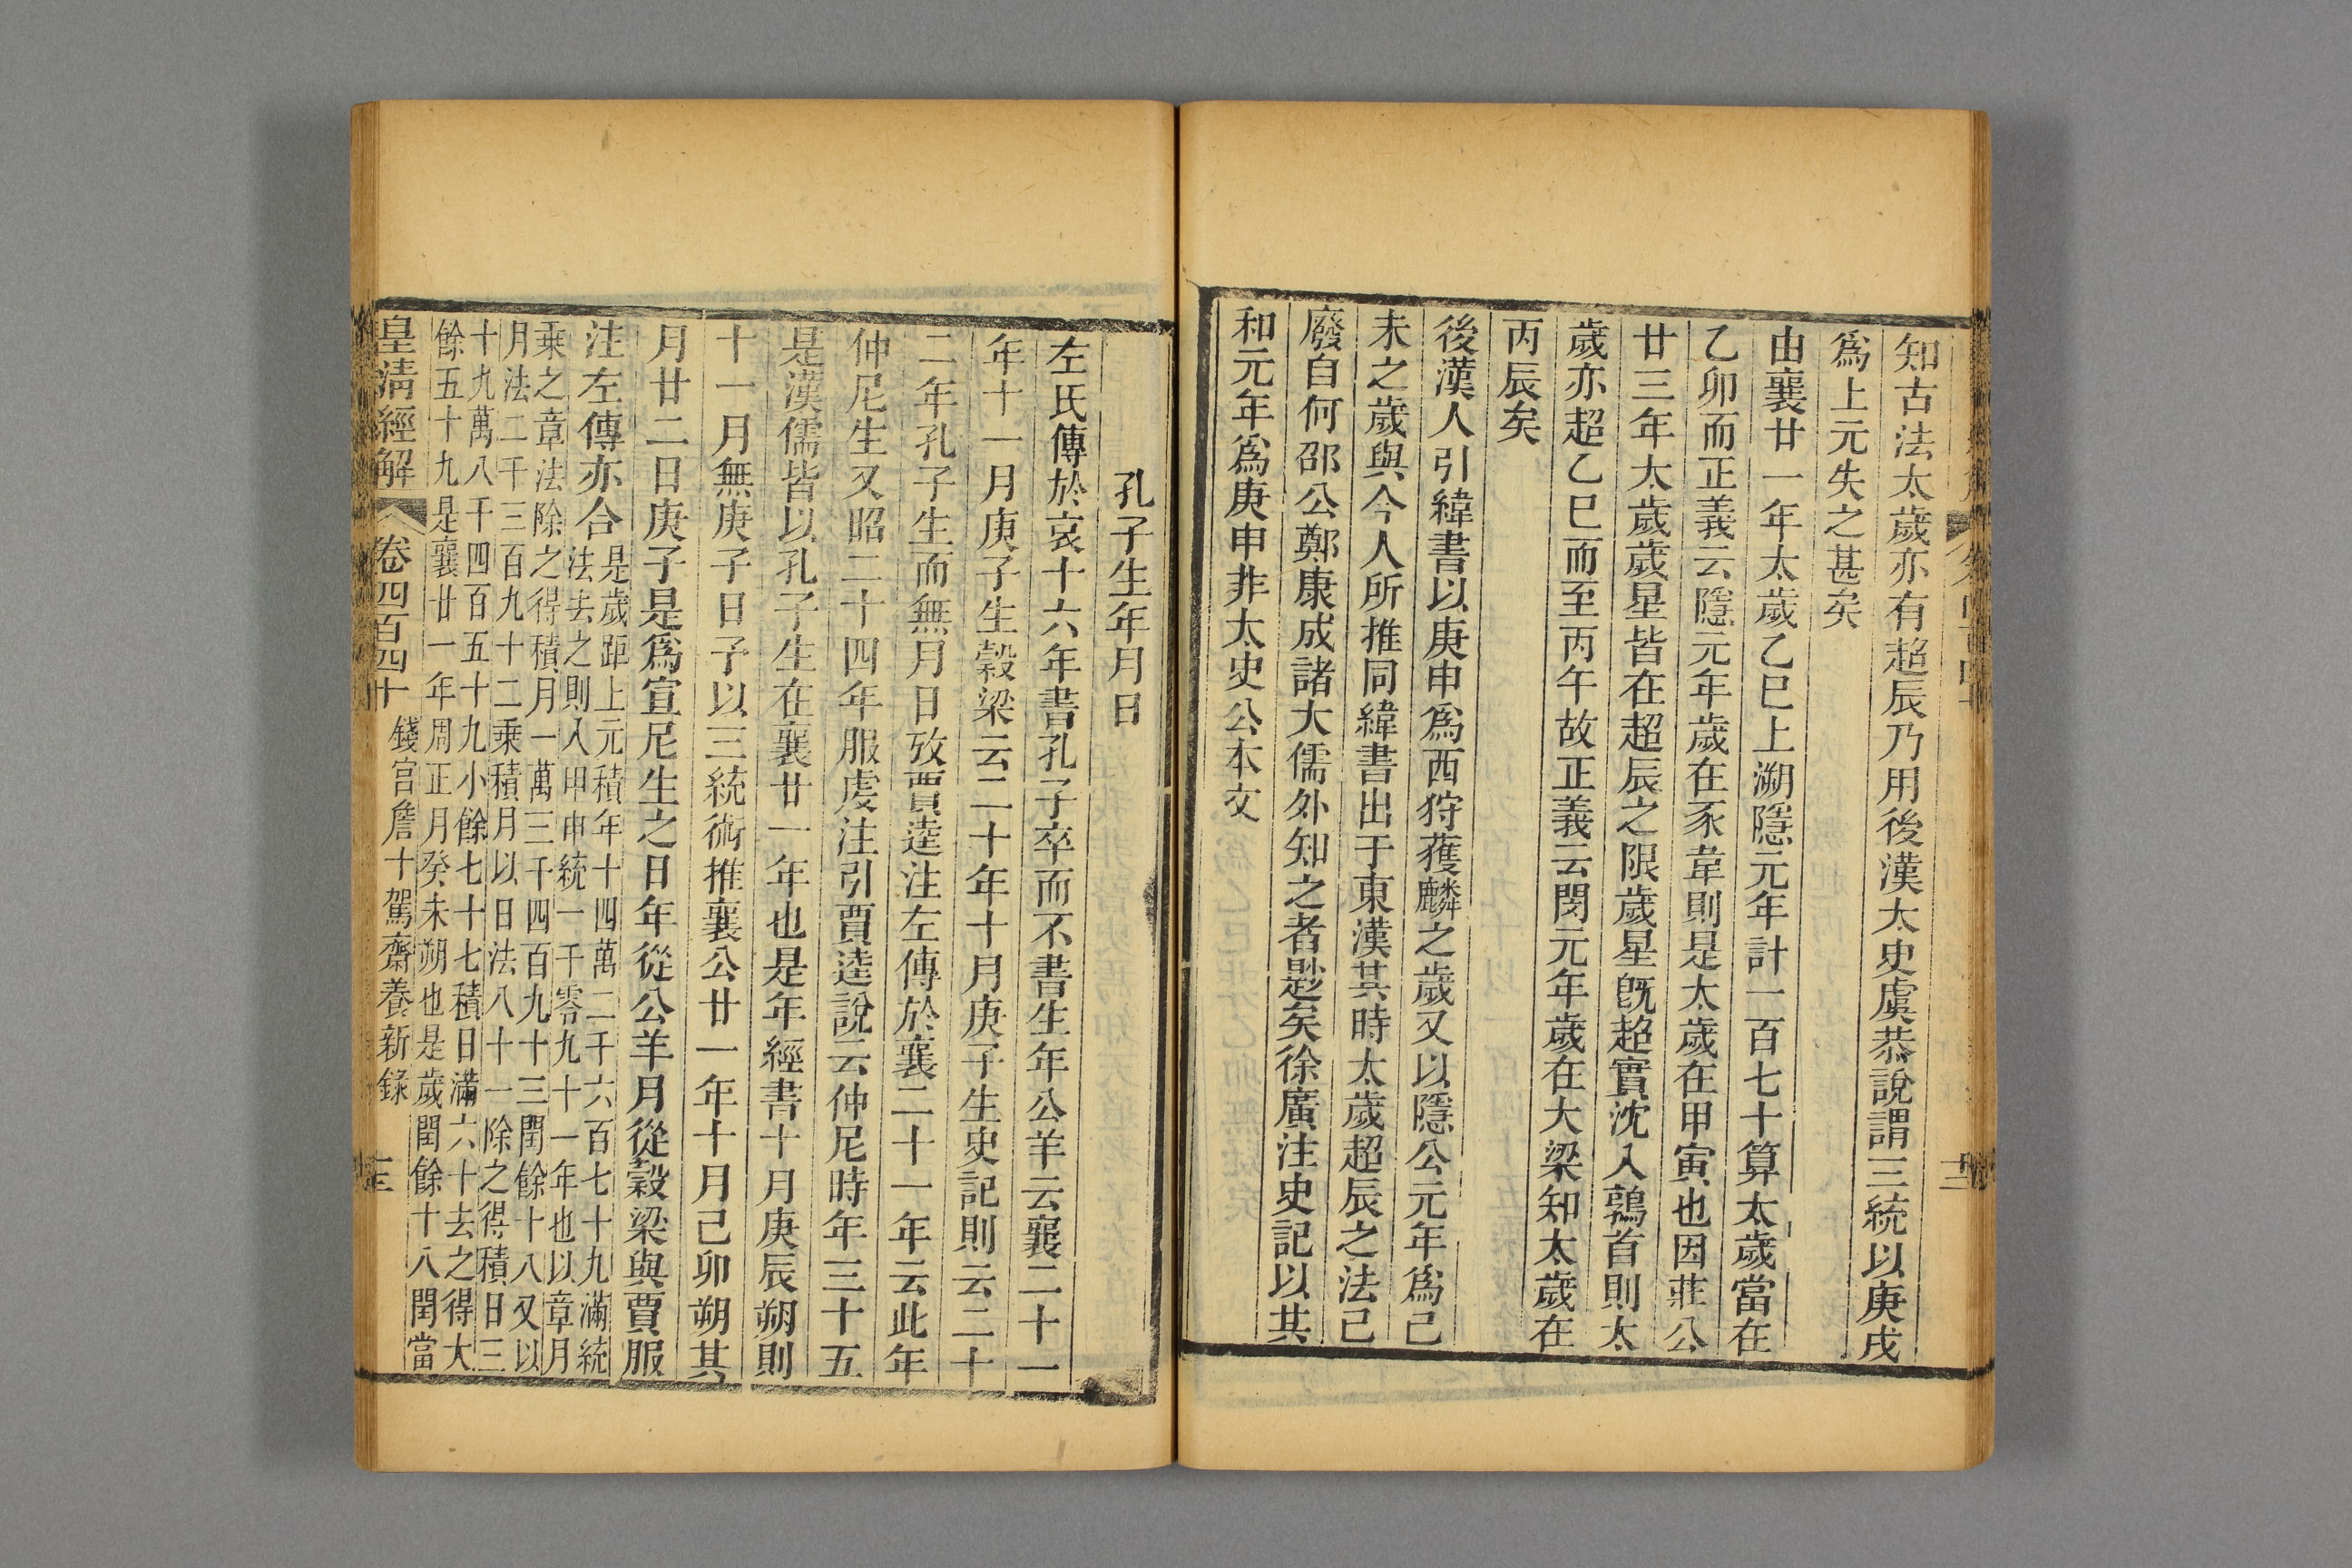 知古法太歲亦有超辰乃用後漢太史虞恭說謂三統以庚戌
爲上元失之甚矣
由襄廿一年太歲乙巳上溯隱元年計一百七十算太歲當在
乙卯而正義云隱元年歲在豕韋則是太歲在甲寅也因莊公
廿三年太歲歲星皆在超辰之限歲星旣超實沈入鶉首則太
歲亦超乙巳而至丙午故正義云閔元年歲在大梁知太歲在
丙辰矣
後漢人引緯書以庚申爲西狩獲麟之歲又以隱公元年爲己
未之歲與今人所推同緯書出于東漢其時太歲超辰之法己
廢自何邵公鄭康成諸大儒外知之者尟矣徐廣注史記以其
和元年爲庚申非太史公本文
孔子生年月日
左氏傳於哀十六年書孔子卒而不書生年公羊云襄二十一
年十一月庚子生穀梁云二十年十月庚子生史記則云二十
二年孔子生而無月日攷賈逵注左傳於襄二十一年云此年
仲尼生又昭二十四年服虔注引賈逵說云仲尼時年三十五
是漢儒皆以孔子生在襄廿一年也是年經書十月庚辰朔則
十一月無庚子日予以三統術推襄公廿一年十月己卯朔其
月廿二日庚子是爲宣尼生之日年從公羊月從穀梁與賈服
注左傳亦合是歲距上元積年十四萬二千六百七十九滿統
法去之則入甲申統一千零九十一年也以章月
乘之章法除之得積月一萬三千四百九十三閏餘十八又以
月法二千三百九十二乘積月以日法八十一除之得積日三
十九萬八千四百五十九小餘七十七積日滿六十去之得大
餘五十九是襄廿一年周正月癸未朔也是歲閏餘十八閏當
皇清經解 卷四百四十 錢宫詹十駕齋養新錄 十三